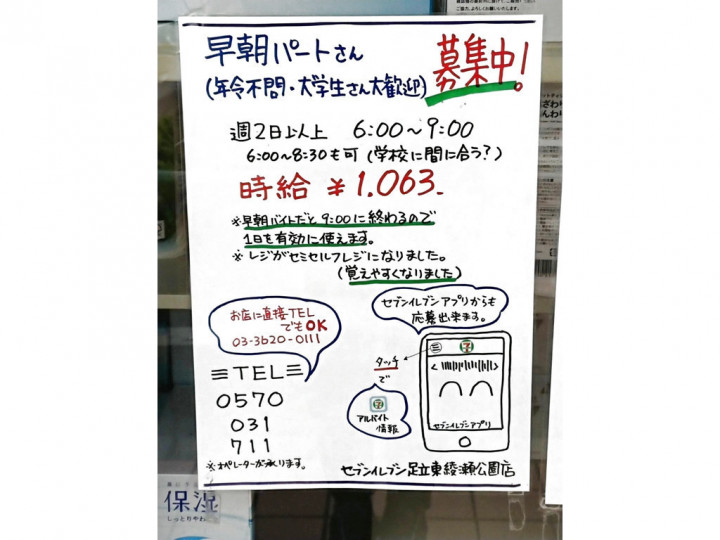 早朝パートさん
募集中!
(年令不問・大学生さん大歓迎)
週2日以上 6:00〜9:00
6:00〜8:30も可(学校に間に合う?)
時給 ¥1.063-
※早朝バイトだと9:00に終わるので
1日を有効に使えます。
※レジがセミセルフレジになりました。
(覚えやすくなりました)
お店に直接TEL
でもOK
03-3620-0111
TEL
0570
031
711
※オペレーターが承ります。
セブンイレブンアプリからも
応募出来ます。
三
7
タッチ
で
7
アルバイト
情報
セブンイレブンアプリ
セブンイレブン足立東綾瀬公園店
保湿
しっとりやわ